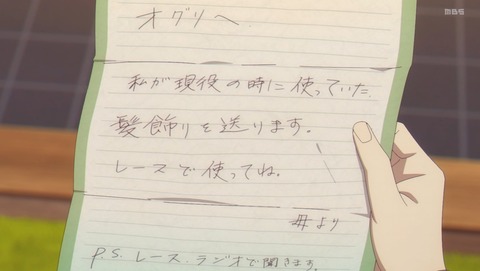 mbs
オグリへ
私が現役の時に使っていた
髪飾りを送ります。
レースで使ってね。
母より
P.S. レース、ラジオで聞きます。